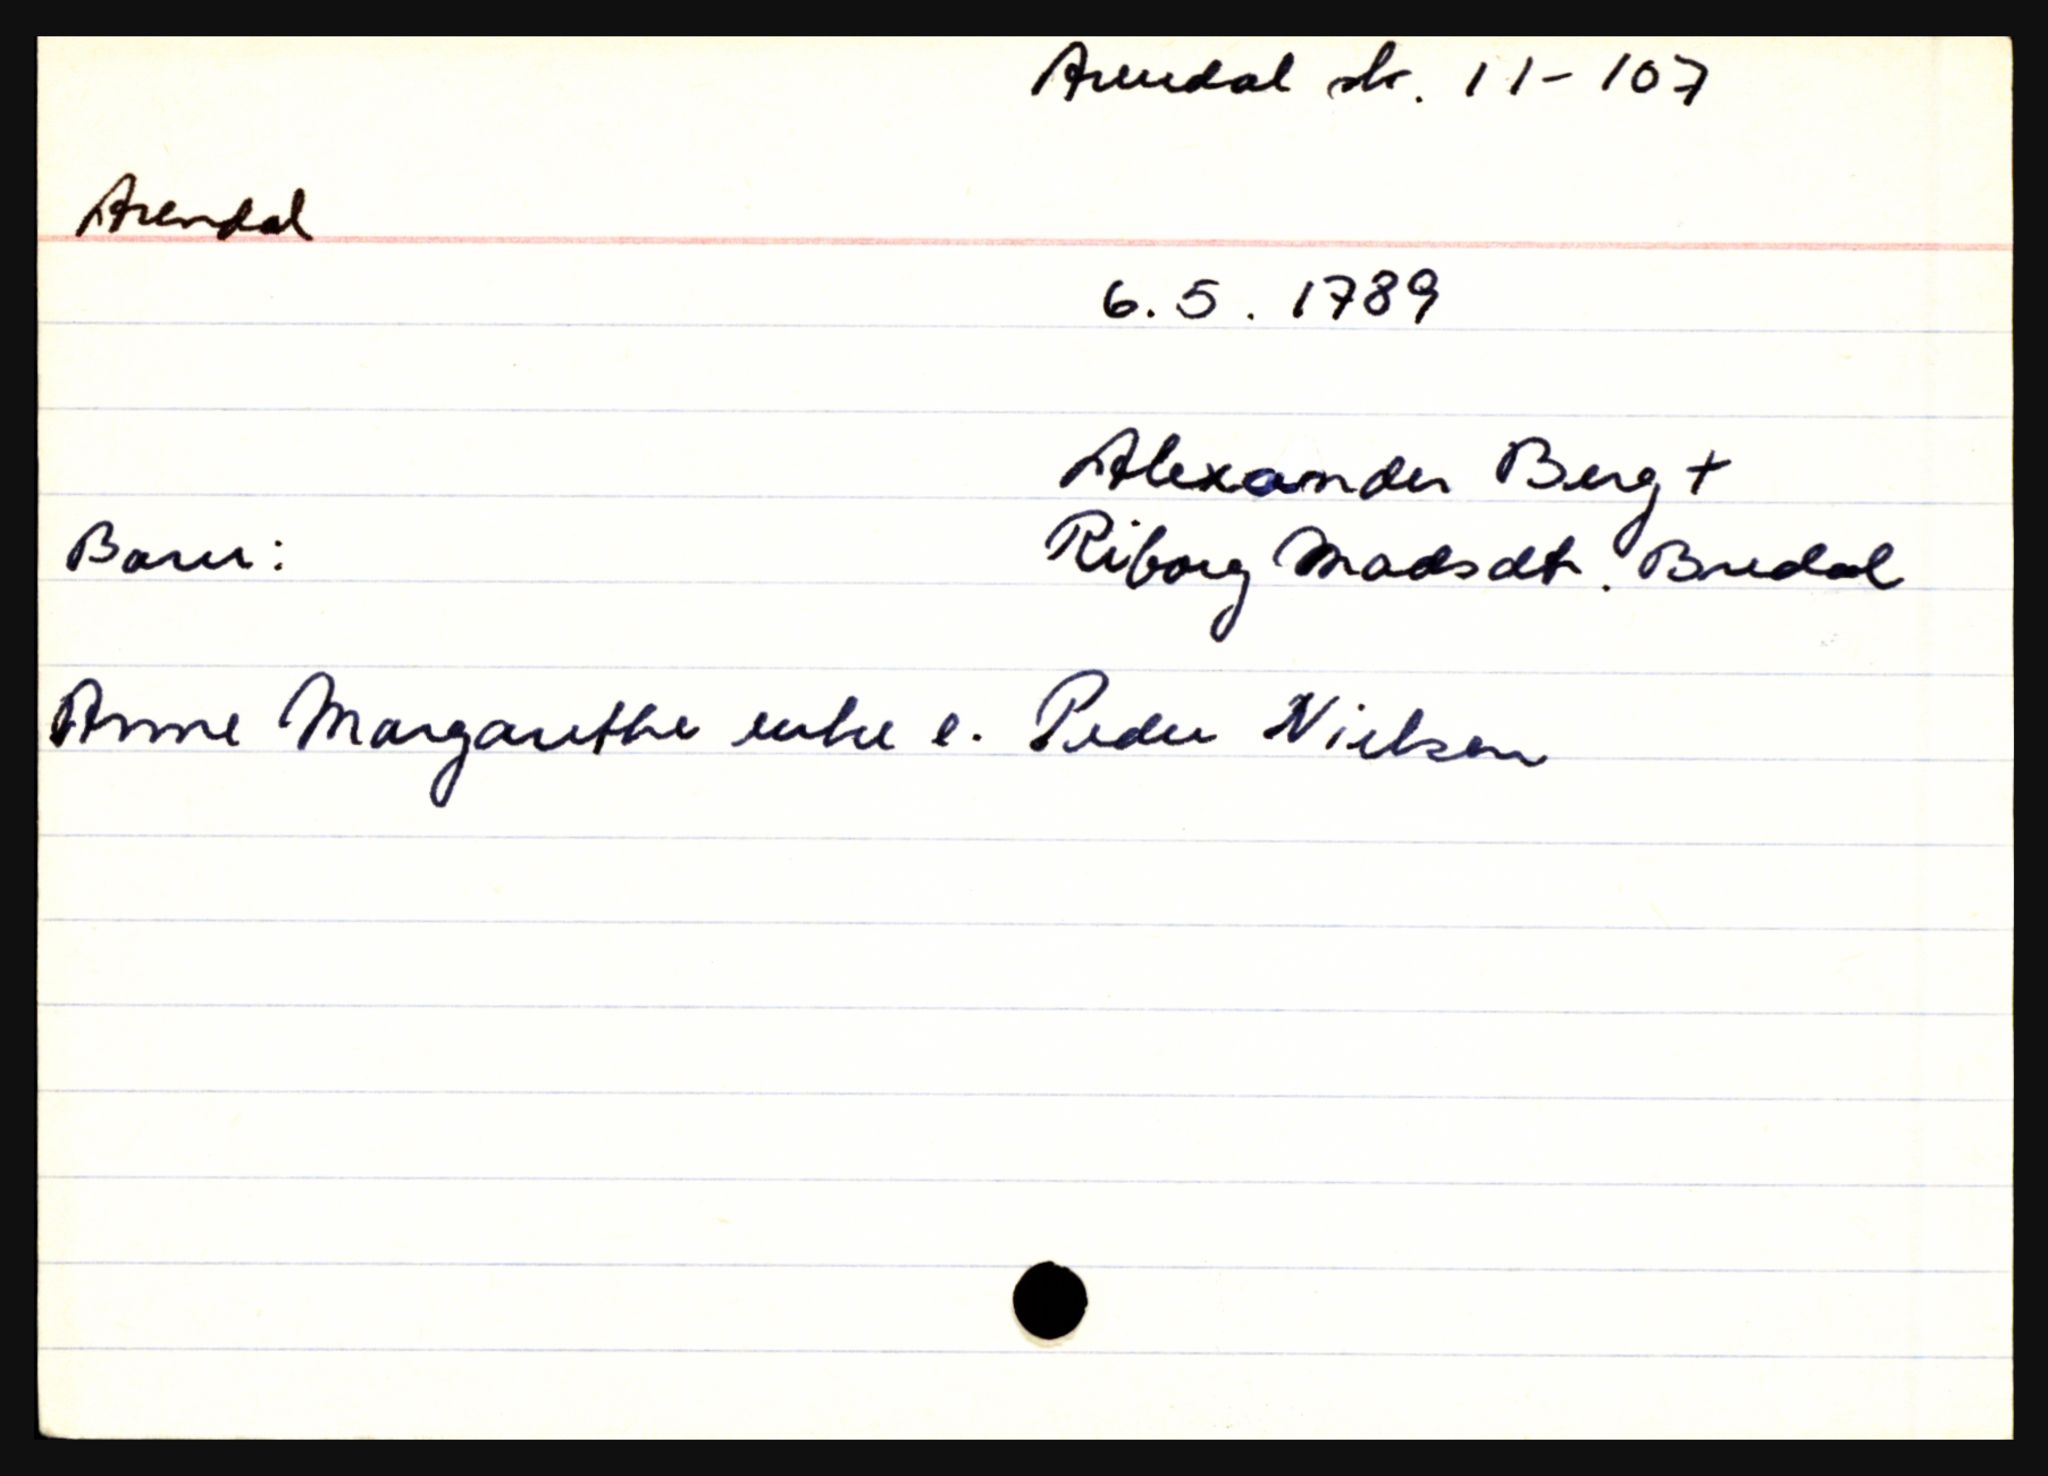 Arendal sk. 11-107
Arendal
6.5.1789
Alexander Berg +
Barn:
Riborg Madsdt. Bredal
Anne Margarethe enke e. Peder Nielsen